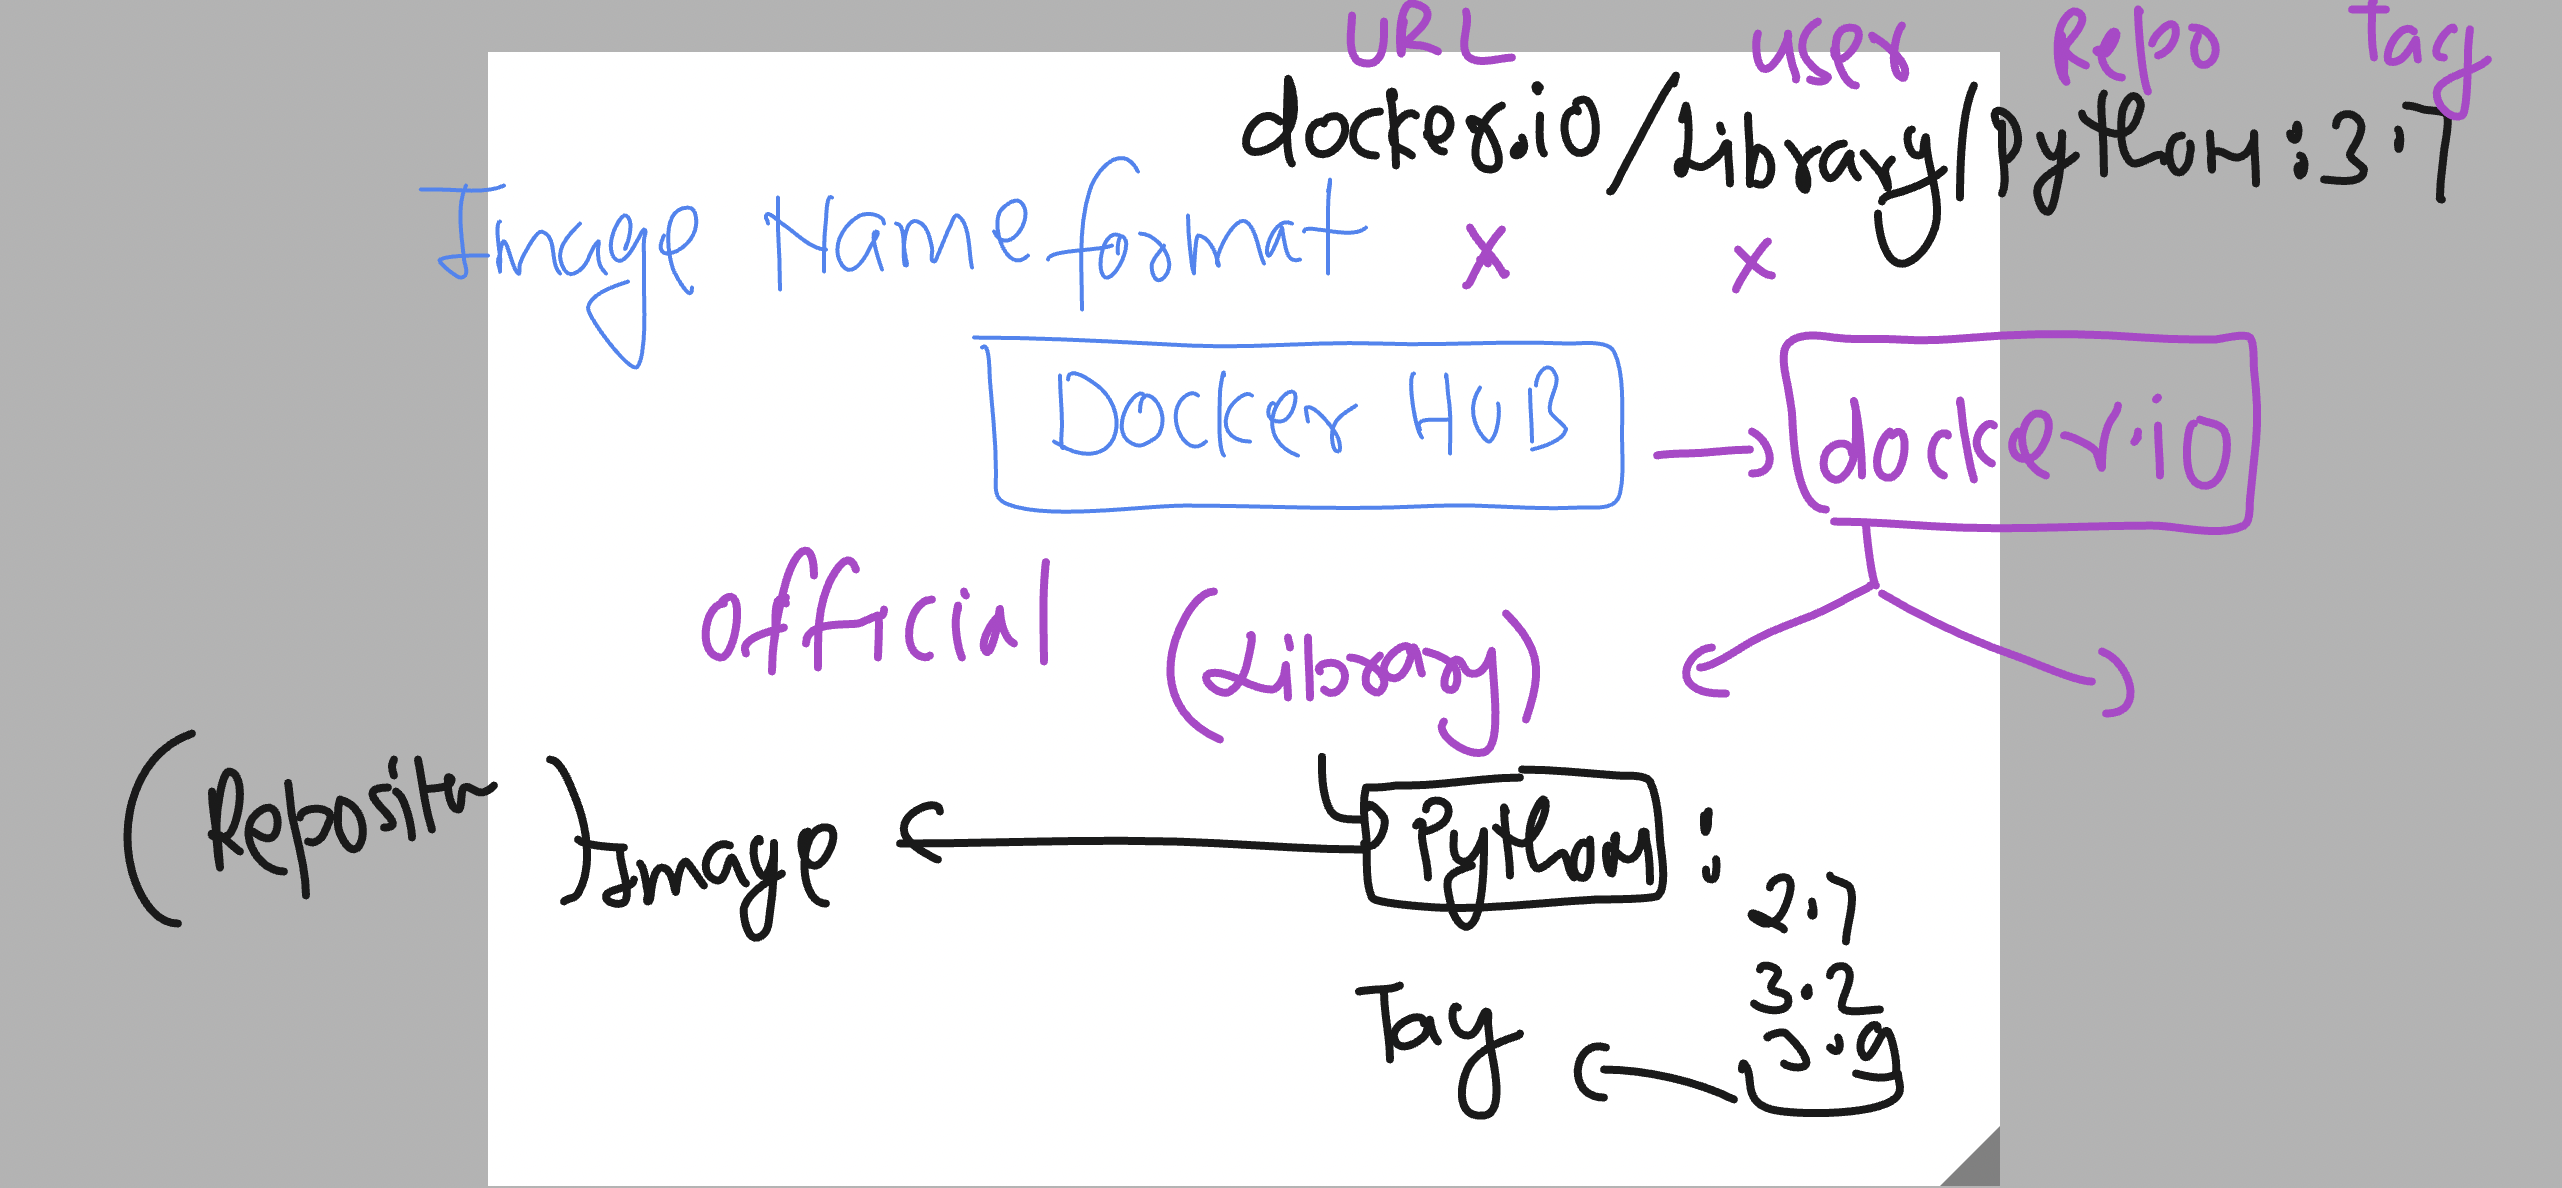 URL user Repo Tag
docker.io/Library/Python:3.7
Image Name format
x x
Docker HUB
docker.io
Official (Library)
(Repositr)
Image
Python :
2.7
3.2
3.9
Tag